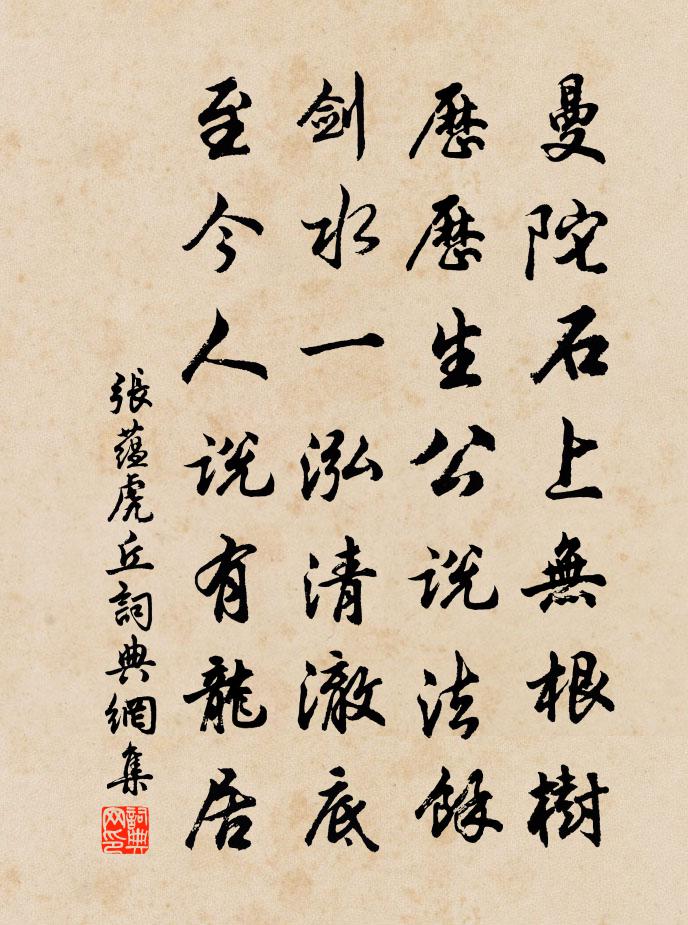 曼陀石上無根樹
歷歷生公說法餘
劍水一泓清澈底
至今人說有龍居
張蘊虎丘詞典網集
詞典网印